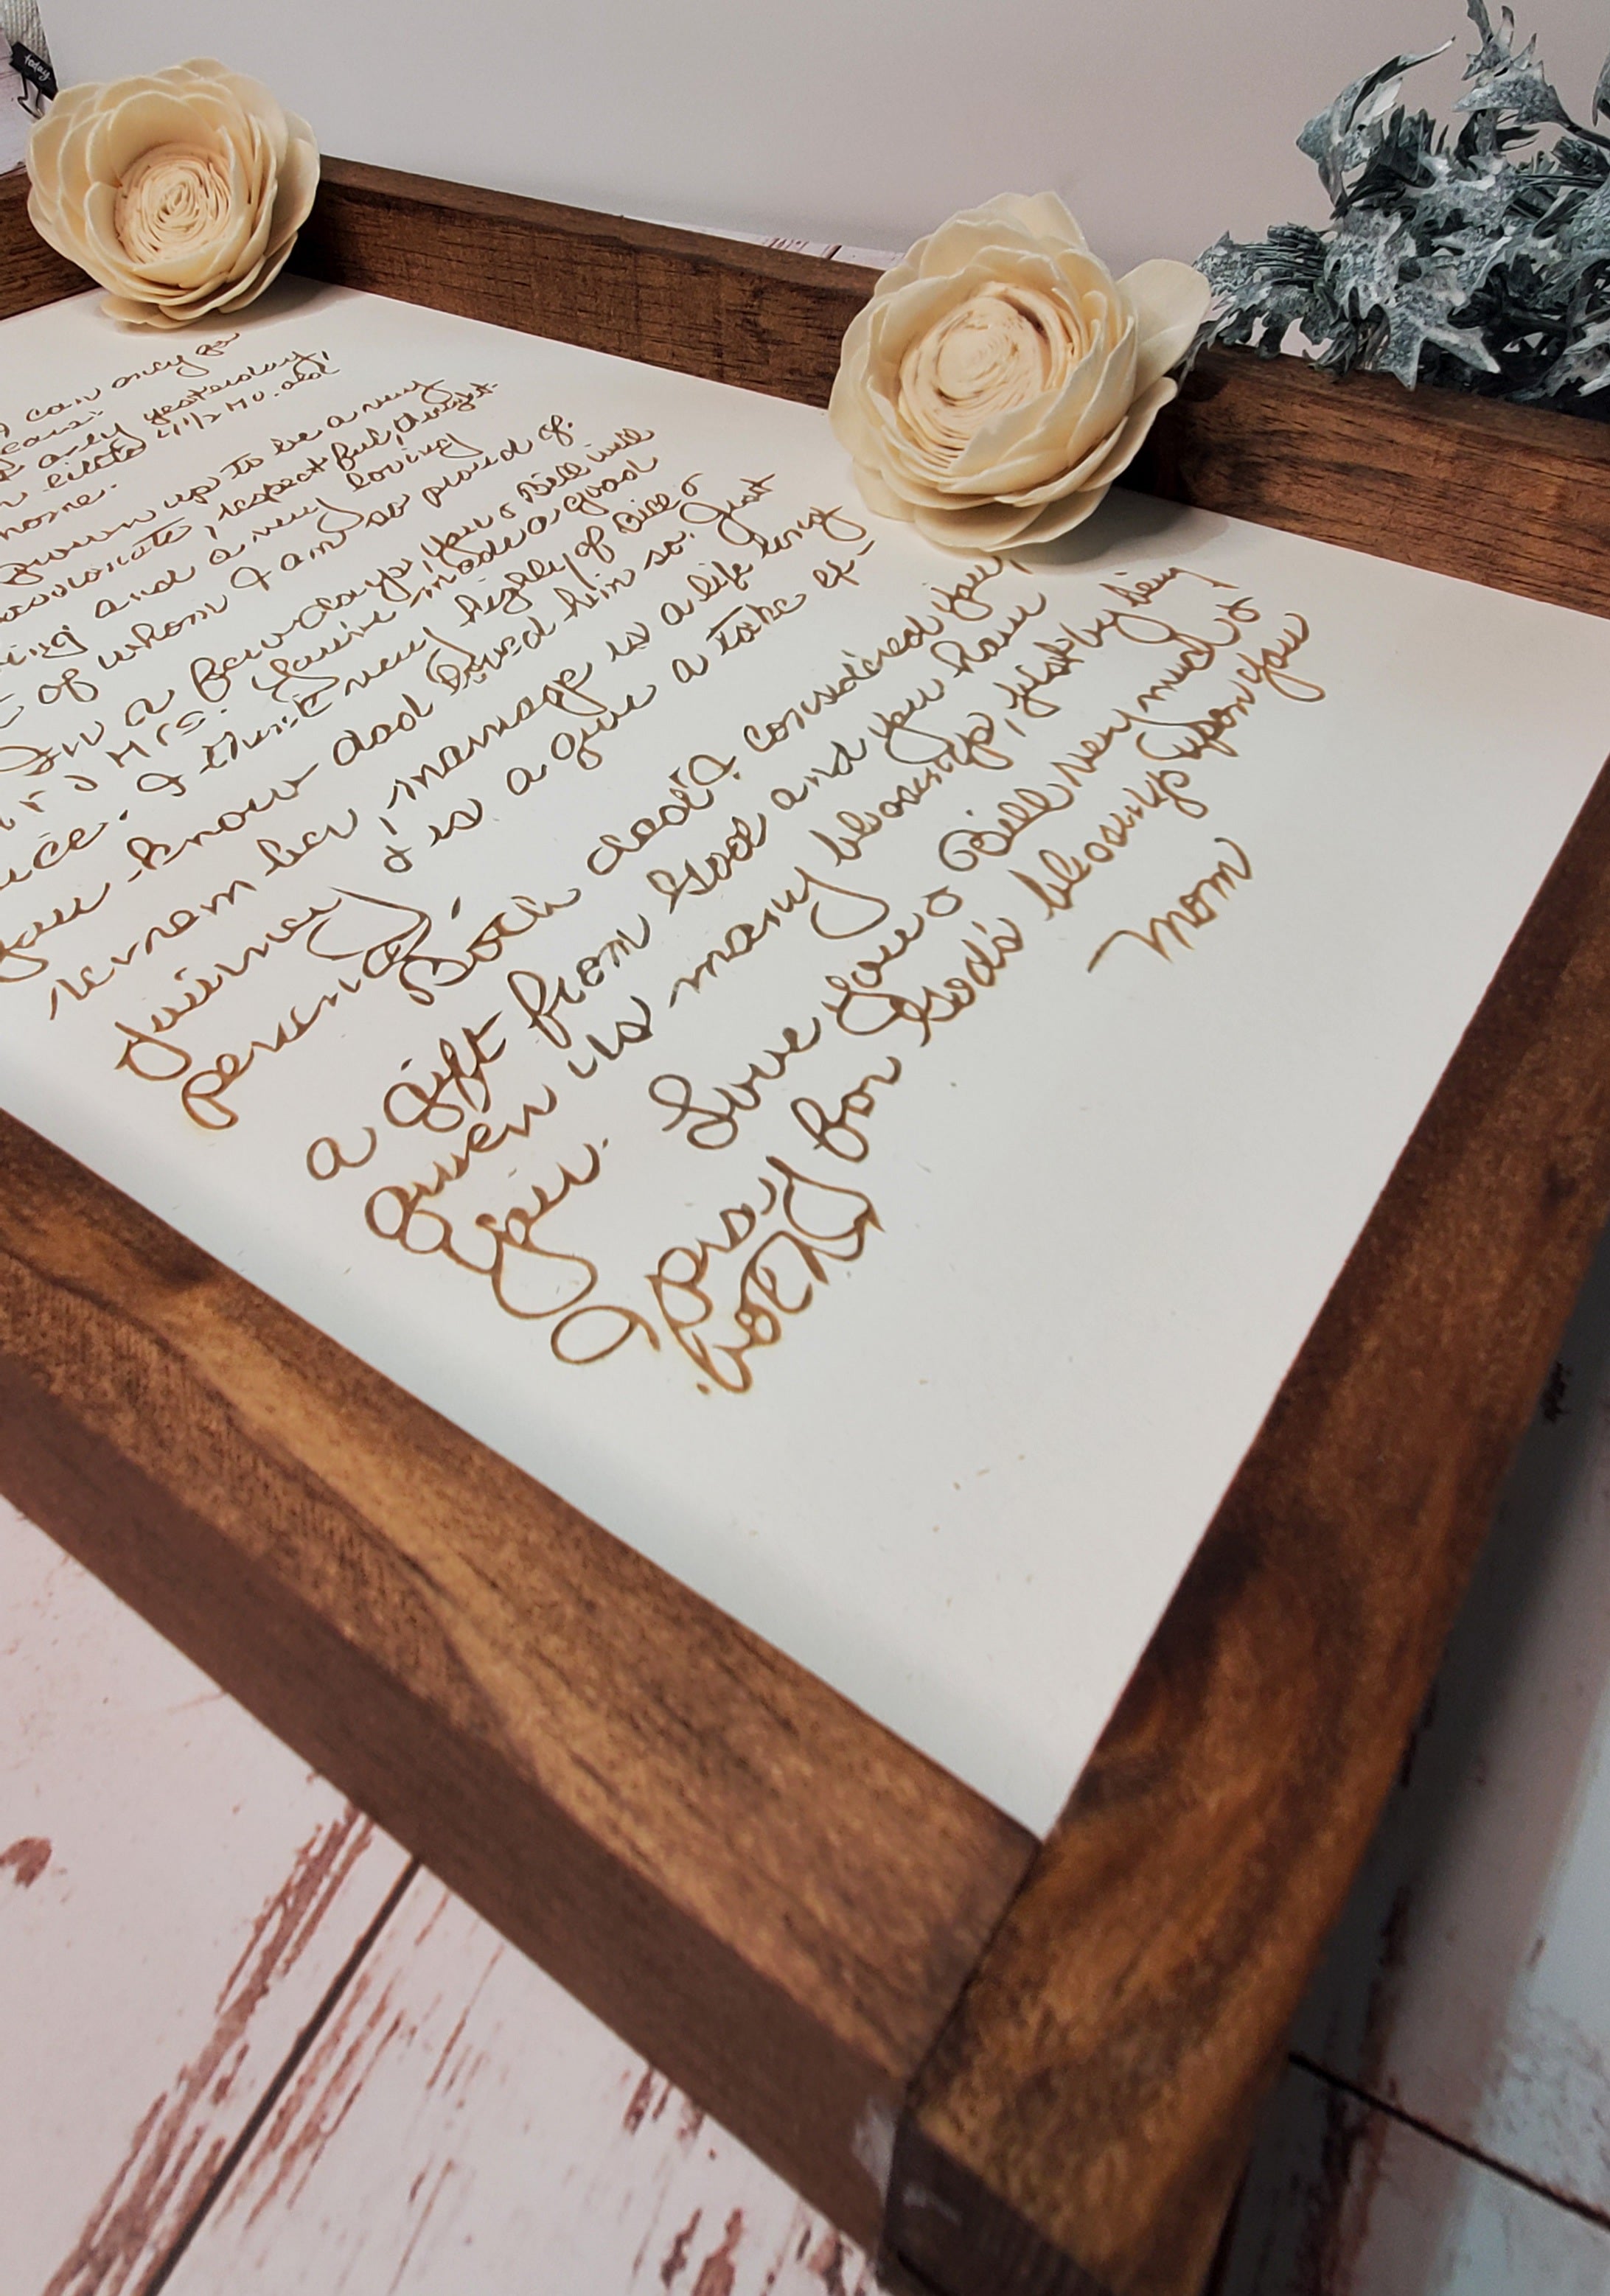 today
I can only
only yesterday,
little 4 1/2 mo. old
home.
grown up to be a very
respectful, thought-
and a very loving
of whom I am so proud of.
In a few days, you & Bill will
Mrs. You've made a good
I think very highly of Bill &
you know dad loved him so. Just
remember, marriage is a life long
journey & is a give & take ex-
perience.
Both dad & I considered you,
a gift from God and you have
given us many blessings, just by being
you. Love you & Bill very much &
I pray for God's blessings upon you
both.
Mom